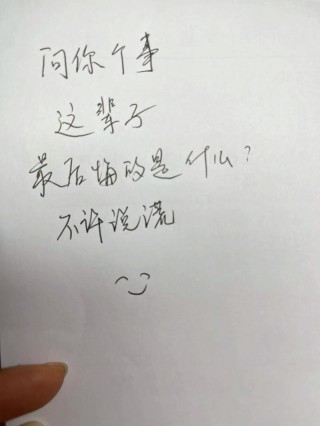 问你个事
这辈子
最后悔的是什么?
不许说谎